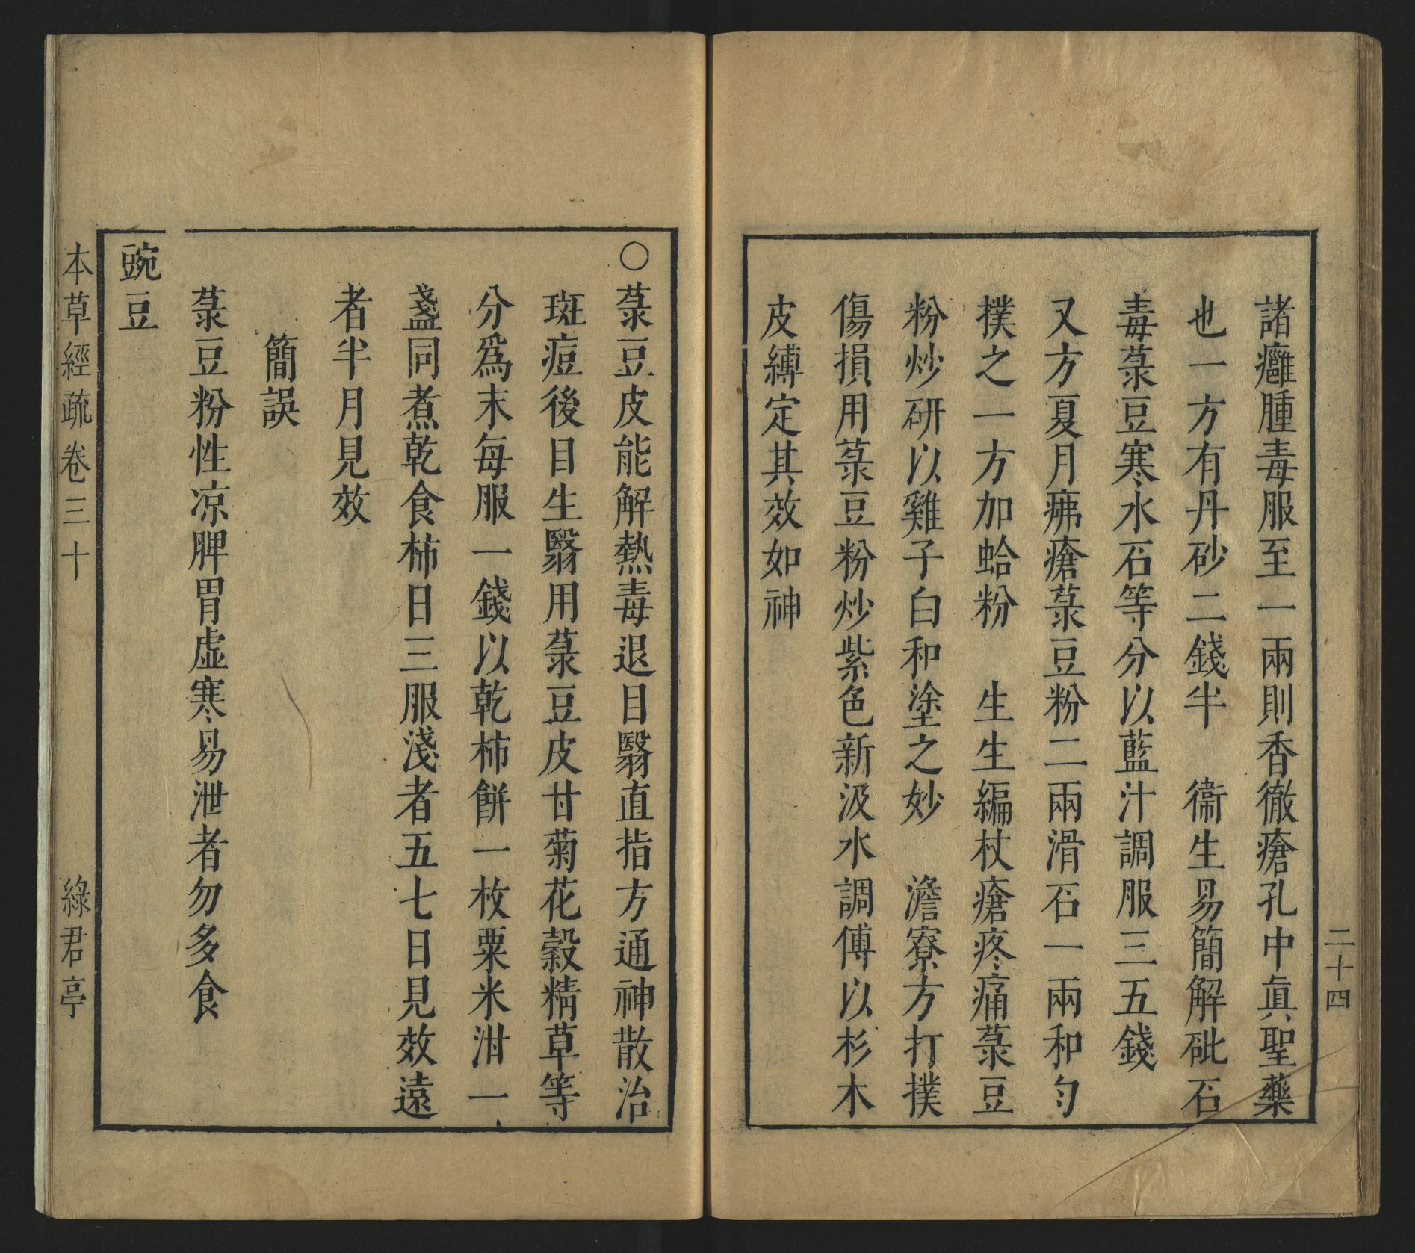 諸癰腫毒服至一兩則香徹瘡孔中眞聖藥
也一方有丹砂二錢半　衞生易簡解砒石
毒菉豆寒水石等分以藍汁調服三五錢
又方夏月疿瘡菉豆粉二兩滑石一兩和勻
撲之一方加蛤粉　生生編杖瘡疼痛菉豆
粉炒研以雞子白和塗之妙　澹寮方打撲
傷損用菉豆粉炒紫色新汲水調傅以杉木
皮縛定其效如神
二十四
○菉豆皮能解熱毒退目翳直指方通神散治
斑痘後目生翳用菉豆皮甘菊花穀精草等
分爲末每服一錢以乾柿餅一枚粟米泔一
盞同煮乾食柿日三服淺者五七日見效遠
者半月見效
簡誤
菉豆粉性凉脾胃虛寒易泄者勿多食
豌豆
本草經疏卷三十
綠君亭